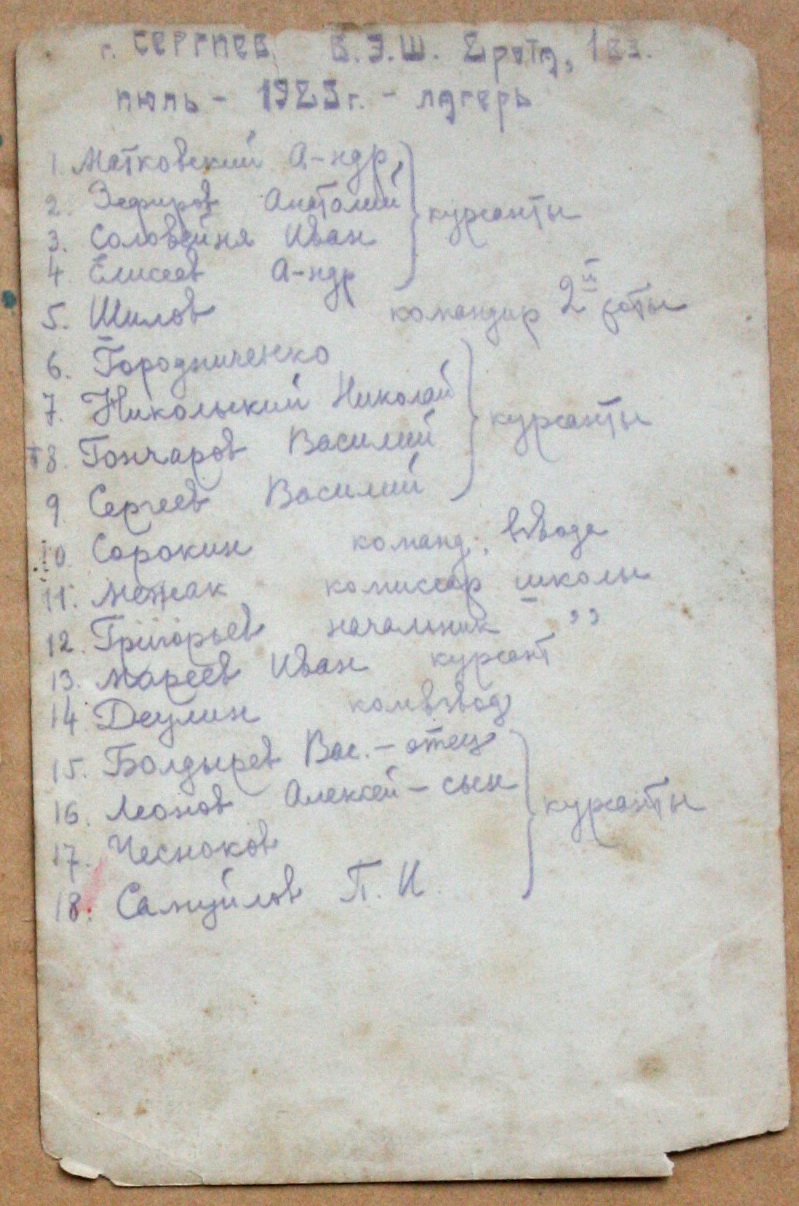 г. Сергиев, В.Э.Ш. 2 рота, 1 вз.
июль - 1925 г. - лагерь
1. Матковский А-ндр.
2. Зефиров Анатолий
3. Соловейня Иван
4. Елисеев А-ндр
курсанты
5. Шилов командир 2й роты
6. Городниченко
7. Никольский Николай
8. Гончаров Василий
9 Сергеев Василий
курсанты
10. Сорокин команд. взвода
11. комиссар школы
12. Григорьев начальник - ,,
13. Мареев Иван курсант
14 Деулин комвзвод
15. Болдырев Вас. - отец
16. Леонов Алексей - сын
17. Чесноков
18. Самуйлов П. И
курсанты